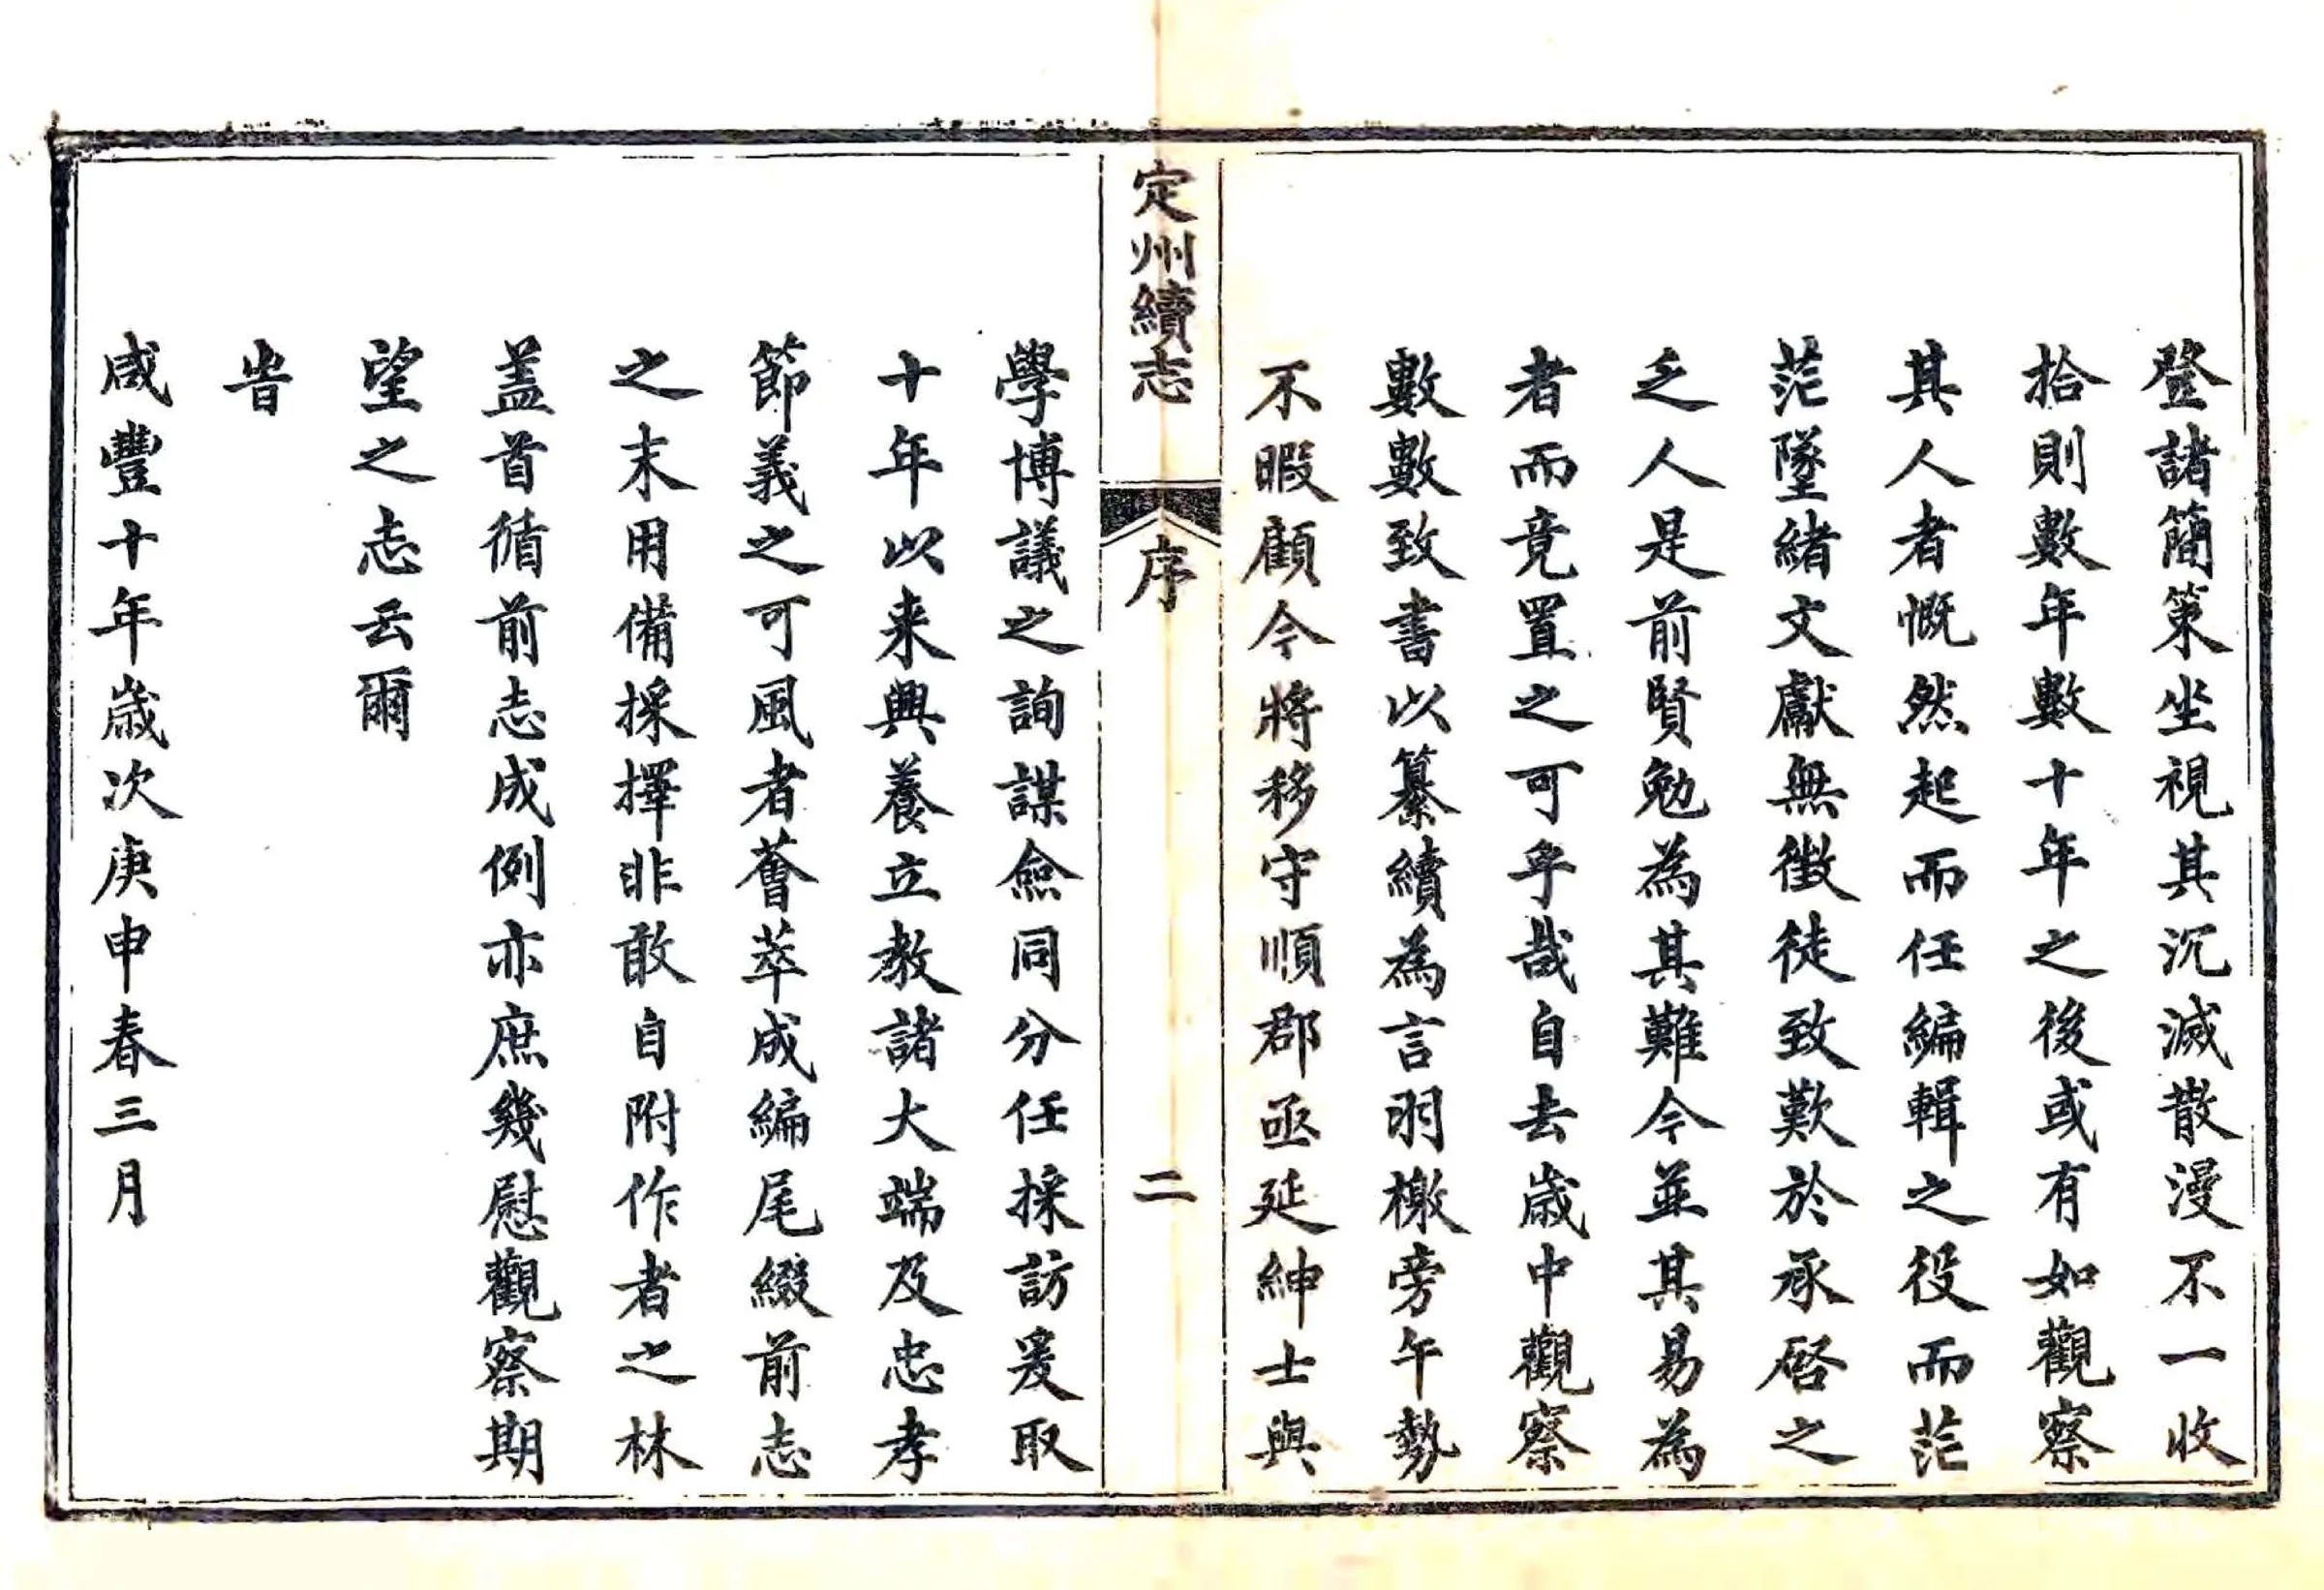 登諸簡策坐視其沉滅散漫不一收
拾則數年數十年之後或有如觀察
其人者慨然起而任編輯之役而茫
茫墜緒文獻無徵徒致歎於承啓之
乏人是前賢勉為其難今並其易為
者而竟置之可乎哉自去歲中觀察
數數致書以纂續為言羽檄旁午勢
不暇顧今將移守順郡亟延紳士與
定州續志
序
二
學博議之詢謀僉同分任採訪爰取
十年以来興養立教諸大端及忠孝
節義之可風者薈萃成編尾綴前志
之末用備採擇非敢自附作者之林
盖首循前志成例亦庶幾慰觀察期
望之志云爾
旹
咸豐十年歲次庚申春三月